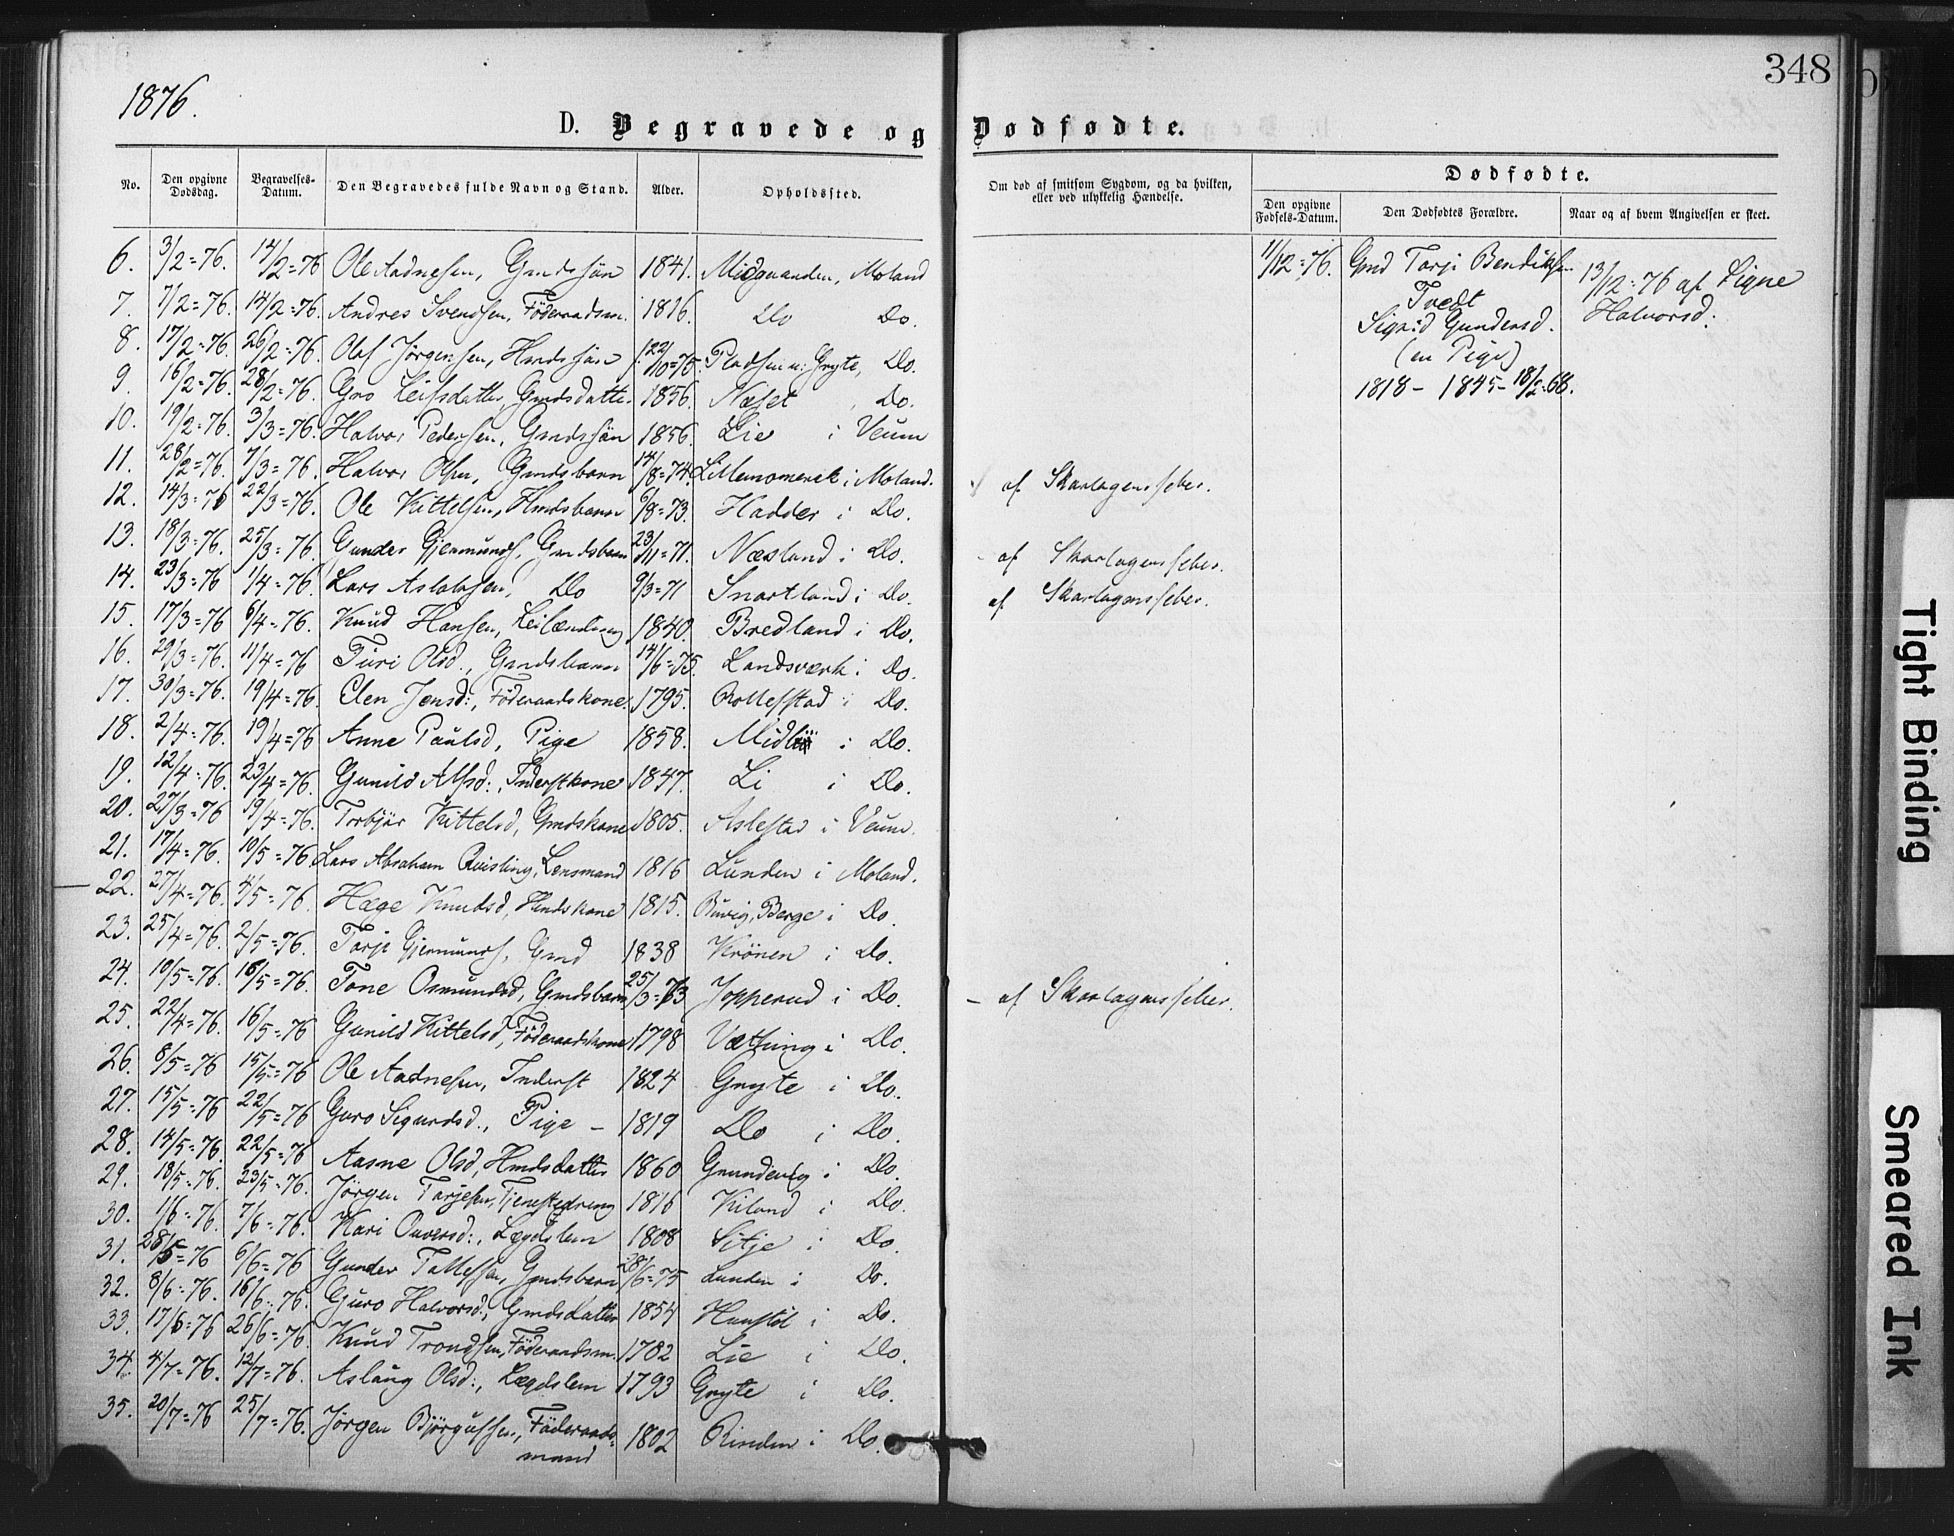 348
1876.
D. Begravede og Dødfødte.
No. Den opgivne Dødsdag. Begravelses-Datum. Den Begravedes fulde Navn og Stand. Alder. Opholdssted. Om død af smitsom Sygdom, og da hvilken, eller ved ulykkelig Hændelse. Dødfødte.
Den opgivne Fødsels-Datum. Den Dødfødtes Forældre. Naar og af hvem Angivelsen er skeet.
6. 3/2=76. 14/2=76 Ole Aadnesen, Gmdssøn 1841. Moland
7. 7/2=76. 14/2=76. Andres Svendsen, Föderaadsm. 1816. Do Do.
8. 17/2=76. 26/2=76. Olaf Jørgensen, Hmdssøn f. 22/10=75. Pladsen u: Gryte, Do.
9. 16/2=76. 28/2=76. Gro Leifsdatter, Gmdsdatter 1856. Næset, Do.
10. 19/2=76. 3/3=76. Halvor Pedersen, Gmdssøn 1856. Lie i Veum
11. 28/2=76. 7/3=76. Halvor Olsen, Gmdsbarn 14/8=74. i Moland. af Skarlagensfeber.
12. 14/3=76 22/3=76. Ole Kittelsen, Hmdsbarn 6/8=73. Hadder i Do.
13. 18/3=76. 25/3=76. Gunder Gjermunds, Gmdsbarn 23/11=71. Næsland i Do. af Skarlagensfeber.
14. 23/3=76 1/4=76. Lars Aslaksen, Do 9/3=71 Snartland i Do. af Skarlagensfeber.
15. 17/3=76 6/4=76. Knud Hansen, Leilænding 1840. Bredland i Do.
16. 29/3=76. 11/4=76 Turi Olsd., Gmdsbarn 14/6=75. Landsværk i Do.
17. 30/3=76. 19/4=76. Elen Jensd:, Föderaadskone. 1795. Rollefstad i Do.
18. 2/4=76. 19/4=76 Anne Paulsd, Pige 1858. i Do.
19. 12/4=76. 23/4=76. Gunild Alfsd:, Inderstkone 1847. Li i Do.
20. 27/3=76 19/4=76. Torbjør Kittelsd, Gmdskone 1805. Aslestad i Veum.
21. 17/4=76. 10/5=76 Lars Abraham Quisling, Lensmand 1816 Lunden i Moland.
22. 27/4=76. 4/5=76. Hæge Knudsd, Hmdskone 1815. Buvig, Berge i Do.
23. 25/4=76. 2/5=76. Torje Gjermunds, Gmd 1838 Krönen i Do.
24. 10/5=76. 16/5=76. Tone Osmundsd, Gmdsbarn 25/3=73 Jopperud i Do. – af Skarlagensfeber.
25. 22/4=76. 16/5=76 Gunild Kittelsd, Föderaadskone 1798 i Do.
26. 8/5=76 15/5=76 Ole Aadnesen, Inderst 1824 Gryte i Do.
27. 15/5=76 22/5=76 Guro Sigurdsd., Pige – 1819 Do i Do.
28. 14/5=76. 22/5=76 Aasne Olsd, Hmdsdatter 1860 i Do.
29. 18/5=76. 23/5=76. Jörgen Tarjesen, Tjenestedreng 1816 Kiland i Do.
30. 1/6=76. 7/6=76. Kari Lægdslem 1808 Sitje i Do.
31. 28/5=76 6/6=76 Gunder Tallefsen, Gmdsbarn 28/6=75 Lunden i Do.
32. 8/6=76. 16/6=76. Guro Halvorsd:, Gmdsdatter 1854 i Do.
33. 17/6=76 26/6=76 Knud Trondsen, Föderaadsm. 1782 Lie i Do.
34. 4/7=76. 12/7=76. Aslaug Olsd:, Lægdslem 1793 Gryte i Do.
35. 20/7=76 25/7=76. Jörgen Bjørgufsen, Föderaads-
mand 1802 Rinden i Do.
11/12=76. Gmd Torje Bendiksen
Tvedt
Sigrid Gundersd.
(en Pige)
1818 – 1845 – 18/2=68.
13/12=76 af Signe
Halvorsd.
Tight Binding
Smeared Ink